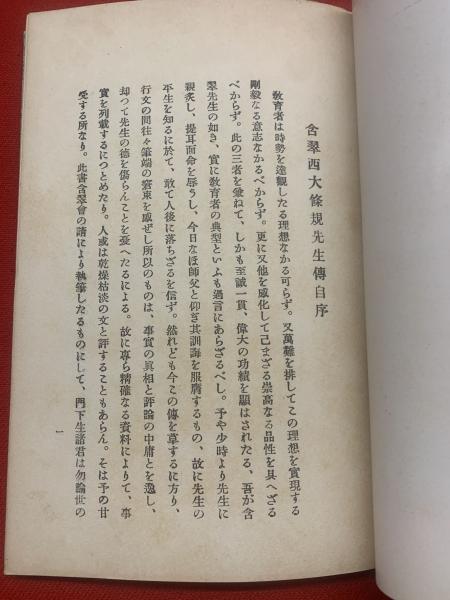 含翠西大條規先生傳自序
教育者は時勢を達觀したる理想なかる可らず。又萬難を排してこの理想を實現する
剛毅なる意志なかるべからず。更に又他を感化して已まざる崇高なる品性を具へざる
べからず。此の三者を兼ねて、しかも至誠一貫、偉大の功績を顯はされたる、吾が含
翠先生の如き、實に教育者の典型といふも過言にあらざるべし。予や少時より先生に
親炙し、提耳面命を辱うし、今日なほ師父と仰ぎ其訓誨を服膺するもの、故に先生の
平生を知るに於て、敢て人後に落ちざるを信ず。然れども今この傳を草するに方り、
行文の間往々筆端の窘束を感ぜし所以のものは、事實の眞相と評論の中庸とを逸し、
却つて先生の德を傷らんことを憂へたるによる。故に專ら精確なる資料によりて、事
實を列載するにつとめたり。人或は乾燥枯淡の文と評することもあらん。そは予の甘
受する所なり。此書含翠會の請により執筆したるものにして、門下生諸君は勿論世の
一